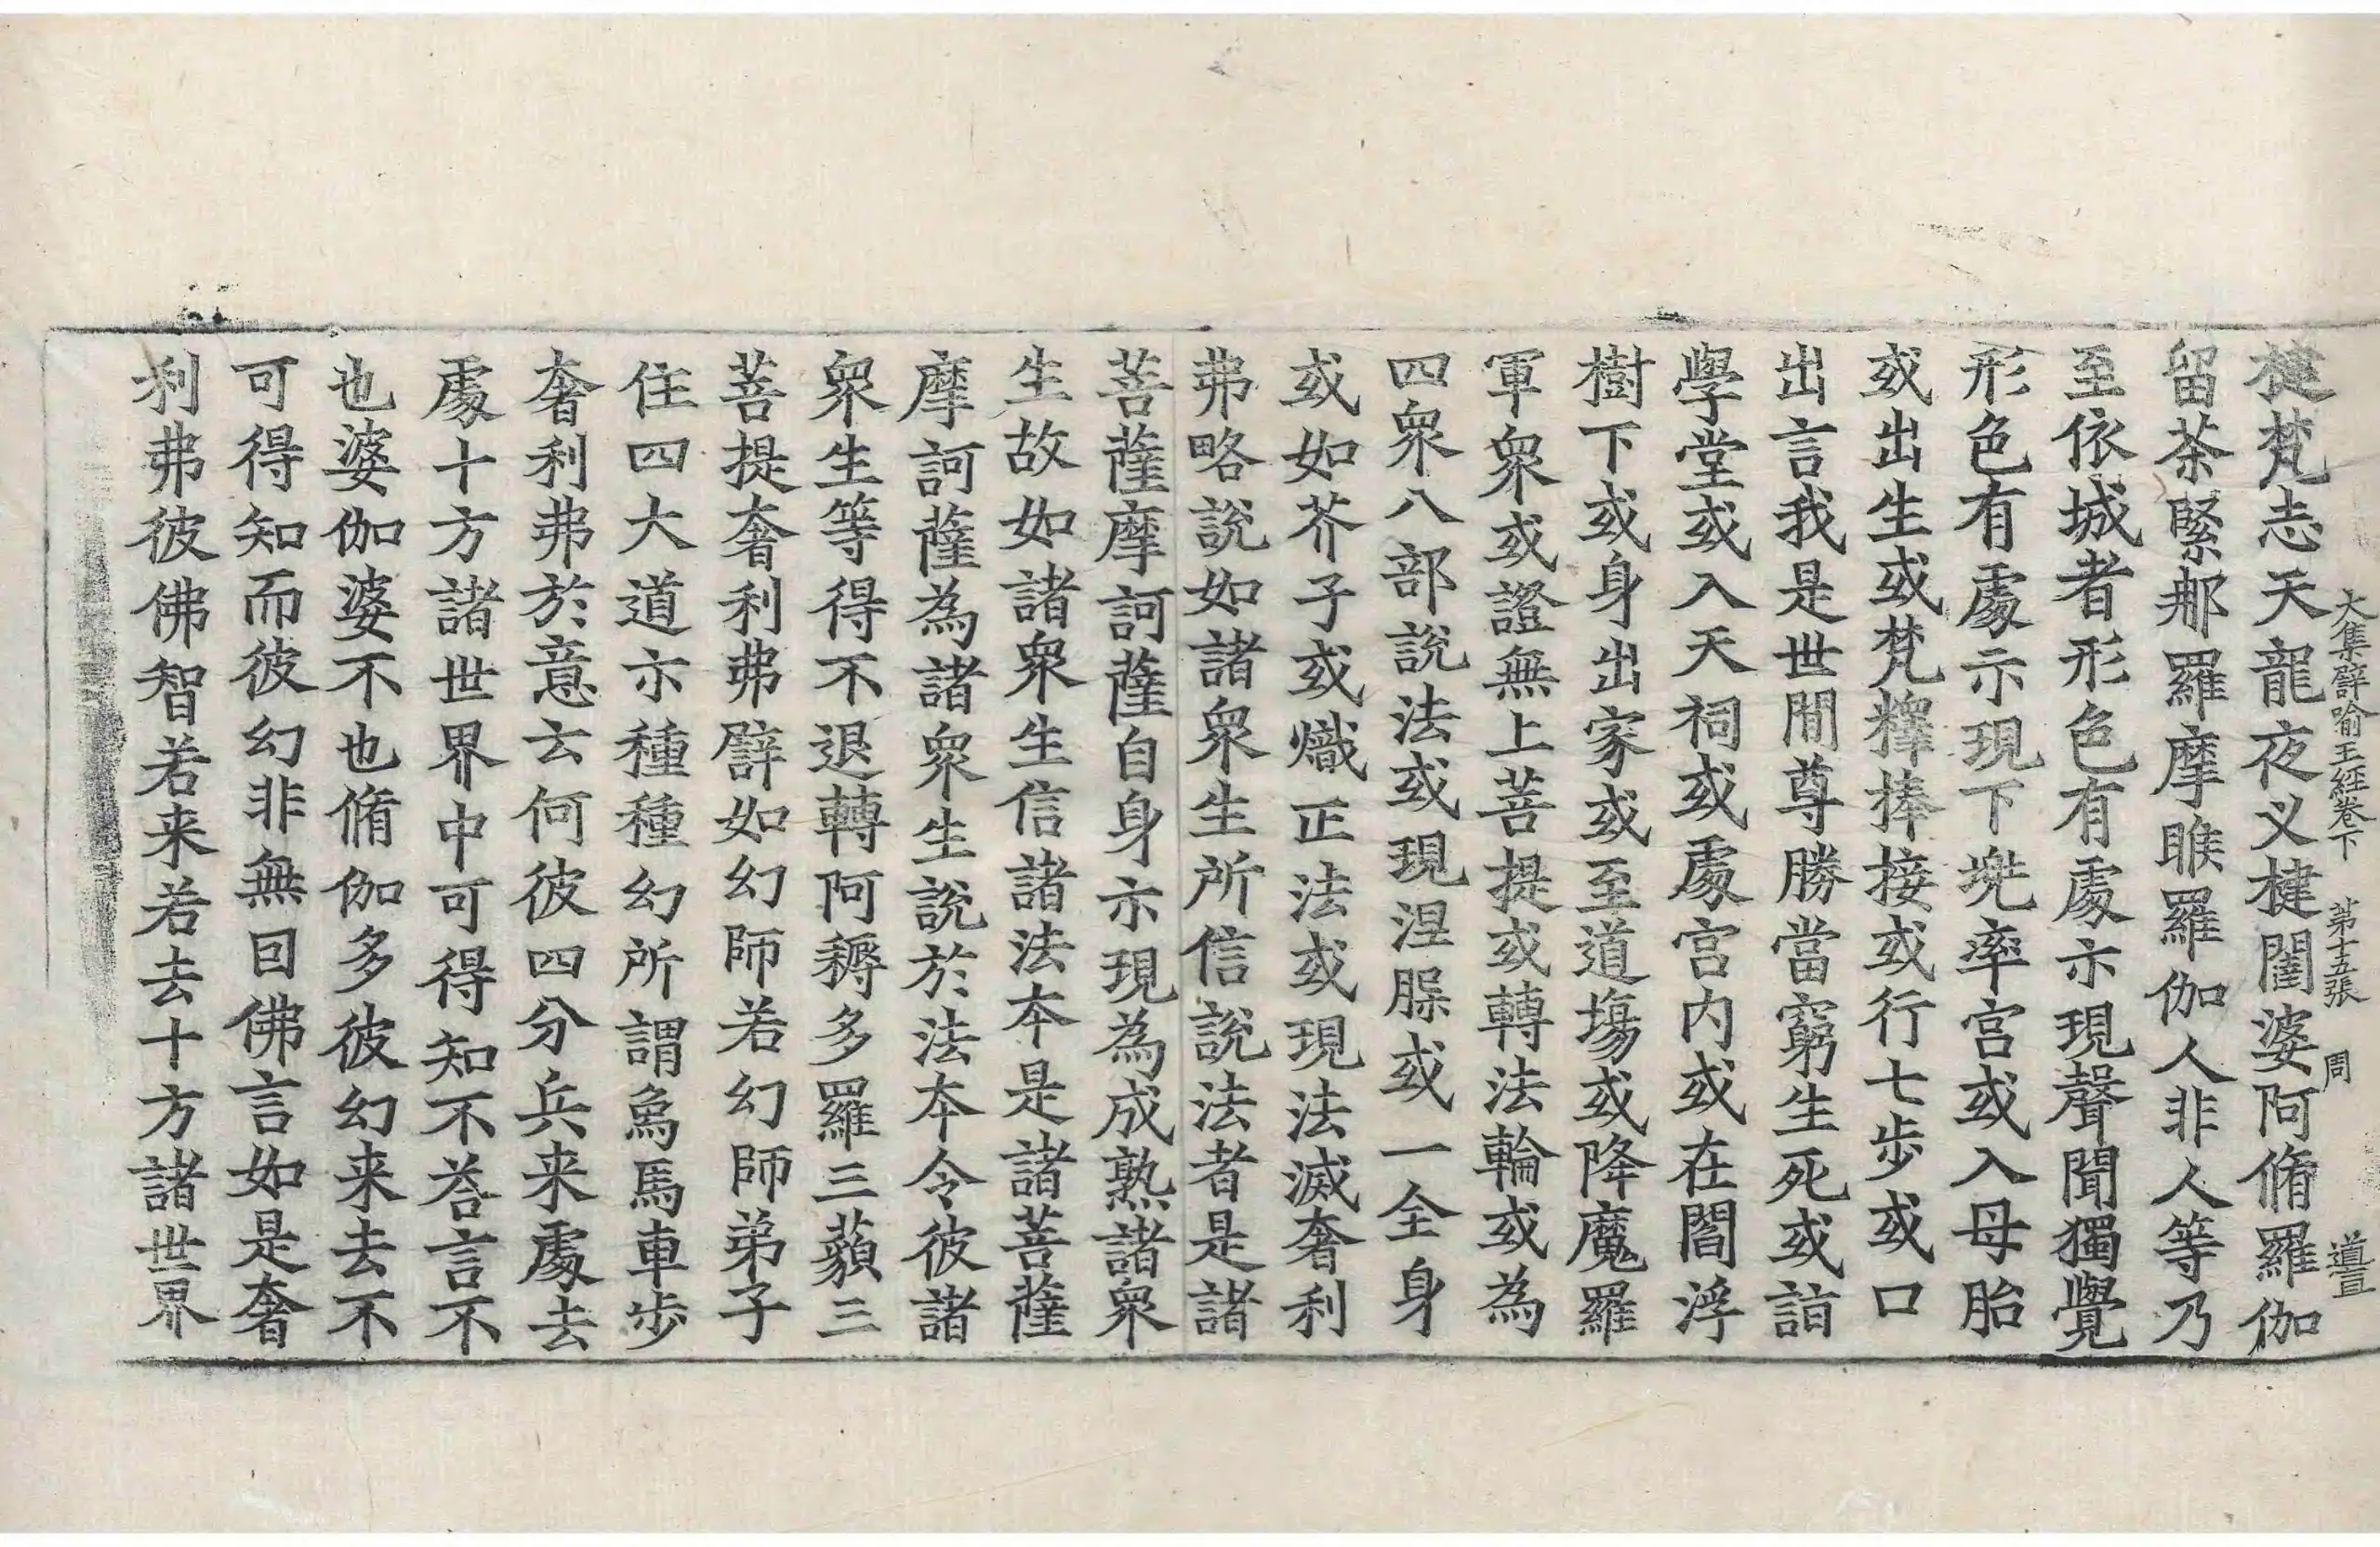 大集譬喻王經卷下 第十五張 周 道亘
揵梵志天龍夜义揵闥婆阿脩羅伽
留茶緊那羅摩睺羅伽人非人等乃
至依城者形色有處示現聲聞獨覺
形色有處示現下兠率宮或入母胎
或出生或梵釋捧接或行七步或口
出言我是世間尊勝當窮生死或詣
學堂或入天祠或處宮内或在閻浮
樹下或身出家或至道場或降魔羅
軍衆或證無上菩提或轉法輪或為
四衆八部說法或現涅膿或一全身
或如芥子或熾正法或現法滅奢利
弗略說如諸衆生所信說法者是諸
菩薩摩訶薩自身示現為成熟諸衆
生故如諸衆生信諸法本是諸菩薩
摩訶薩為諸衆生說於法本令彼諸
衆生等得不退轉阿耨多羅三藐三
菩提奢利弗譬如幻師若幻師弟子
住四大道示種種幻所謂象馬車步
奢利弗於意云何彼四分兵来處去
處十方諸世界中可得知不荅言不
也婆伽婆不也脩伽多彼幻来去不
可得知而彼幻非無因佛言如是奢
利弗彼佛智若来若去十方諸世界